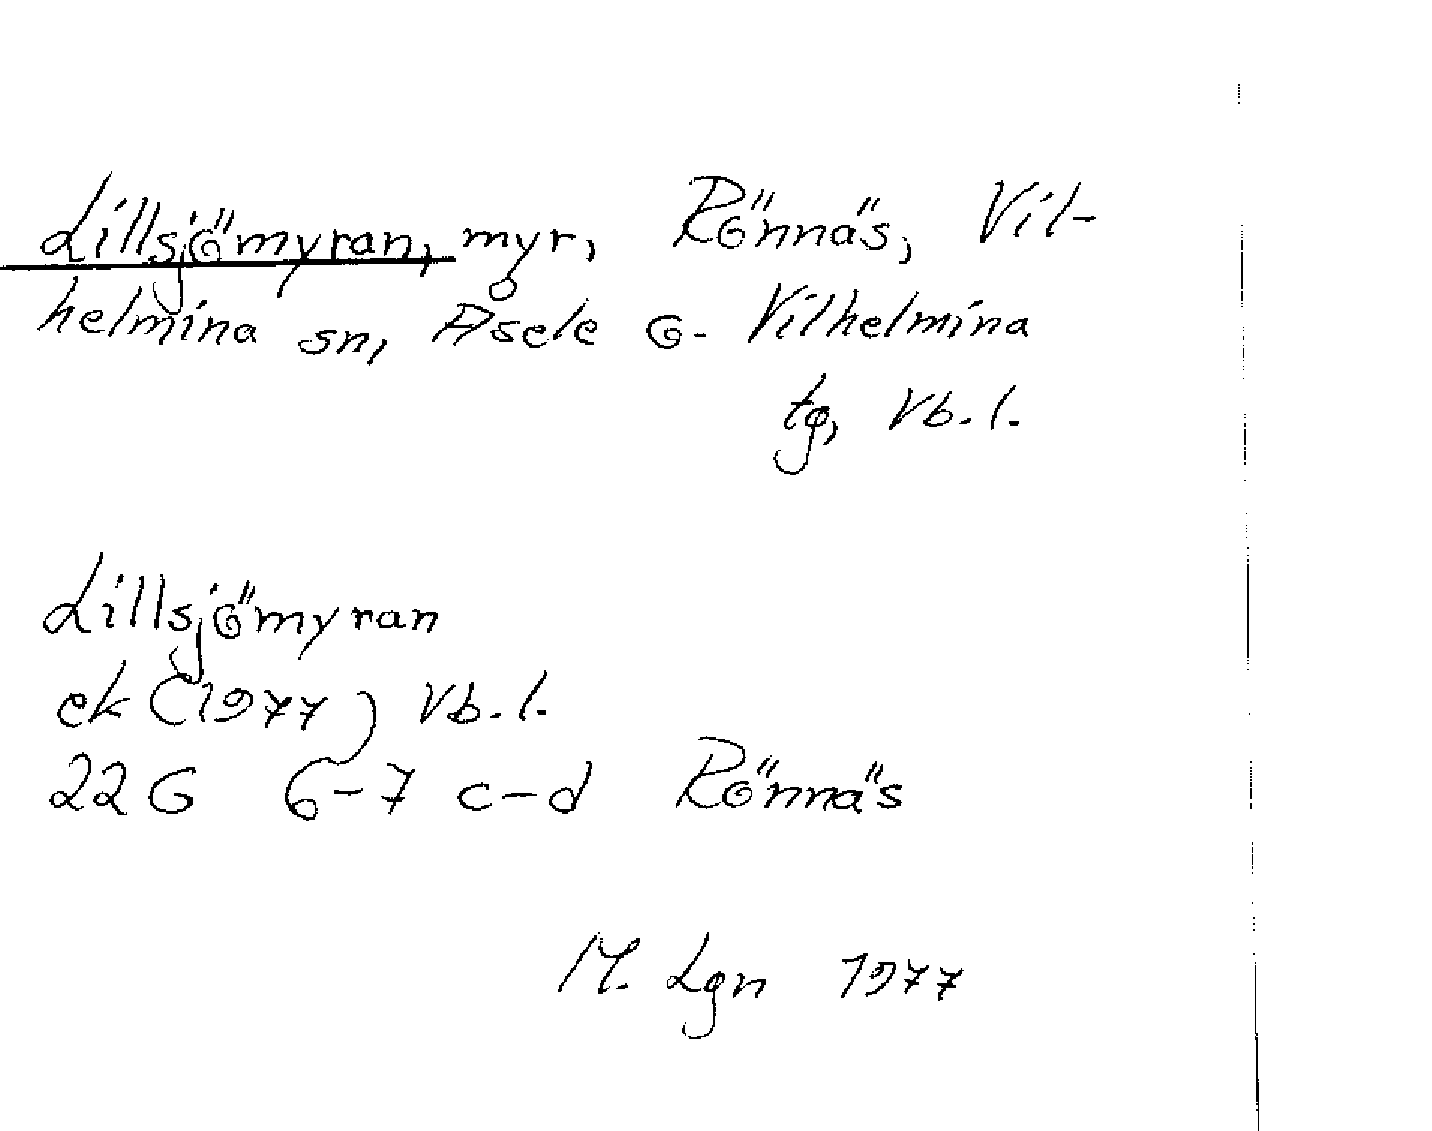 Lillsjömyran, myr, Rönnäs, Vil-
helmina sn, Åsele o. Vilhelmina
tg, Vb. l.
Lillsjömyran
ek (1977) Vb. l.
22 G 6-7 c-d Rönnäs
M. Lgn 1977